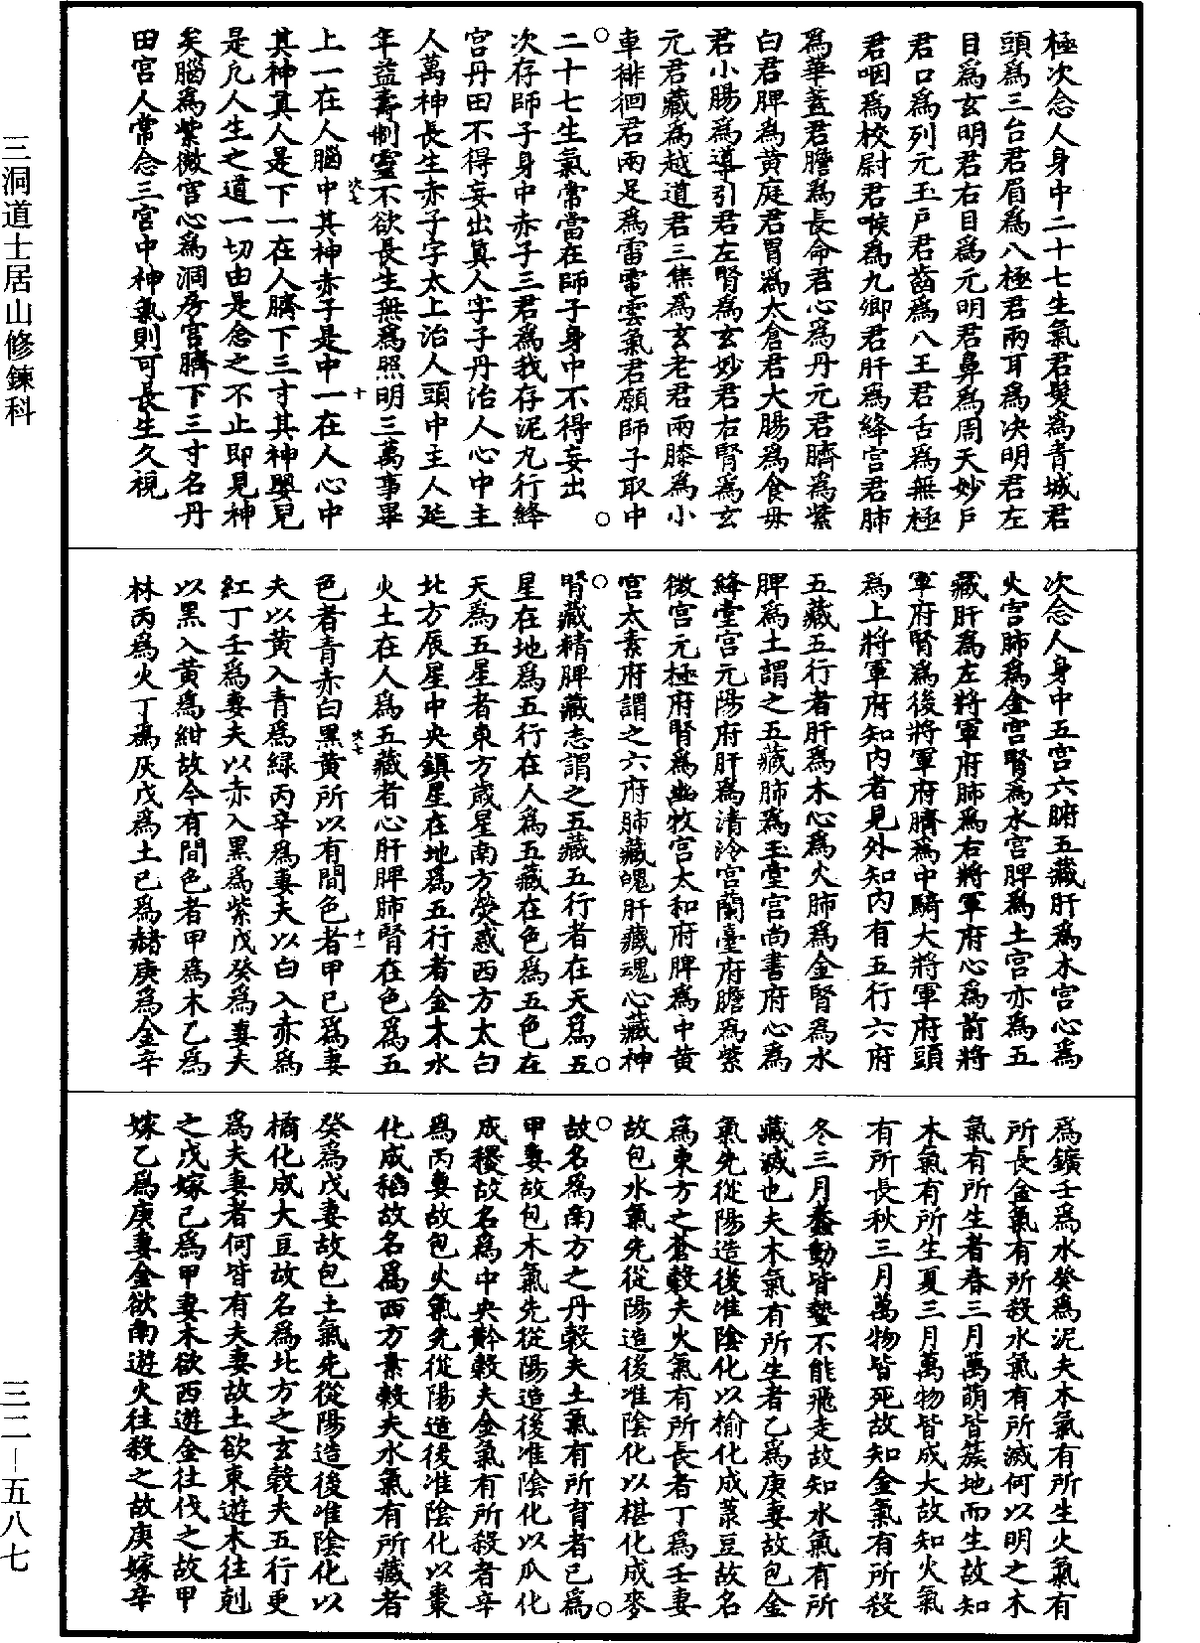 極次念人身中二十七生氣君髮為青城君
頭為三台君眉為八極君兩耳為決明君左
目為玄明君右目為元明君鼻為周天妙戶
君口為列元玉戶君齒為八王君舌為無極
君咽為校尉君喉為九卿君肝為絳宮君肺
為華蓋君膽為長命君心為丹元君臍為紫
白君脾為黃庭君胃為太倉君大腸為食母
君小腸為導引君左腎為玄妙君右腎為玄
元君藏為越道君三焦為玄老君兩膝為小
車徘徊君兩足為雷電雲氣君願師子取中
二十七生氣常當在師子身中不得妄出
次存師子身中赤子三君為我存泥丸行絳
宮丹田不得妄出真人字子丹治人心中主
人萬神長生赤子字太上治人頭中主人延
年益壽制靈不欲長生無為照明三萬事畢
上一在人腦中其神赤子是中一在人心中
其神真人是下一在人臍下三寸其神嬰兒
是凡人生之道一切由是念之不止即見神
矣腦為紫微宮心為洞房宮臍下三寸名丹
田宮人常念三宮中神氣則可長生久視
次念人身中五宮六腑五藏肝為木宮心為
火宮肺為金宮腎為水宮脾為土宮亦為五
藏肝為左將軍府肺為右將軍府心為前將
軍府腎為後將軍府臍為中騎大將軍府頭
為上將軍府知內者見外知內有五行六府
五藏五行者肝為木心為火肺為金腎為水
脾為土謂之五藏肺為玉堂宮尚書府心為
絳堂宮元陽府肝為清泠宮蘭臺府膽為紫
微宮元極府腎為幽牧宮太和府脾為中黃
宮太素府謂之六府肺藏魄肝藏魂心藏神
腎藏精脾藏志謂之五藏五行者在天為五
星在地為五行在人為五藏在色為五色在
天為五星者東方歲星南方熒惑西方太白
北方辰星中央鎮星在地為五行者金木水
火土在人為五藏者心肝脾肺腎在色為五
色者青赤白黑黃所以有間色者甲己為妻
夫以黃入青為綠丙辛為妻夫以白入赤為
紅丁壬為妻夫以赤入黑為紫戊癸為妻夫
以黑入黃為紺故今有間色者甲為木乙為
林丙為火丁為灰戊為土己為赭庚為金辛
為鑛壬為水癸為泥夫木氣有所生火氣有
所長金氣有所殺水氣有所滅何以明之木
氣有所生者春三月萬萌皆蔟地而生故知
木氣有所生夏三月萬物皆成大故知火氣
有所長秋三月萬物皆死故知金氣有所殺
冬三月蠢動皆蟄不能飛走故知水氣有所
藏滅也夫木氣有所生者乙為庚妻故包金
氣先從陽造後准陰化以榆化成菉豆故名
為東方之蒼穀夫火氣有所長者丁為壬妻
故包水氣先從陽造後准陰化以椹化成麥
故名為南方之丹穀夫土氣有所育者己為
甲妻故包木氣先從陽造後准陰化以瓜化
成稷故名為中央黅穀夫金氣有所殺者辛
為丙妻故包火氣先從陽造後准陰化以棗
化成稻故名為西方素穀夫水氣有所藏者
癸為戊妻故包土氣先從陽造後准陰化以
橘化成大豆故名為北方之玄穀夫五行更
為夫妻者何皆有夫妻故土欲東遊木往剋
之戊嫁己為甲妻木欲西遊金往伐之故甲
嫁乙為庚妻金欲南遊火往殺之故庚嫁辛
三洞道士居山修鍊科
三二—五八七